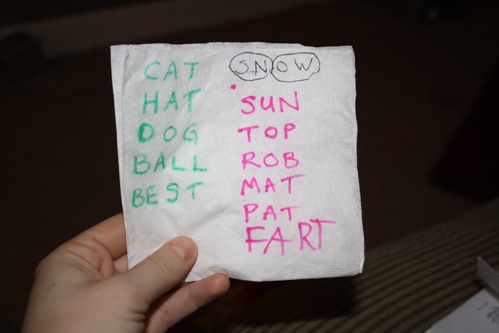 CAT
HAT
DOG
BALL
BEST
SNOW
SUN
TOP
ROB
MAT
PAT
FART